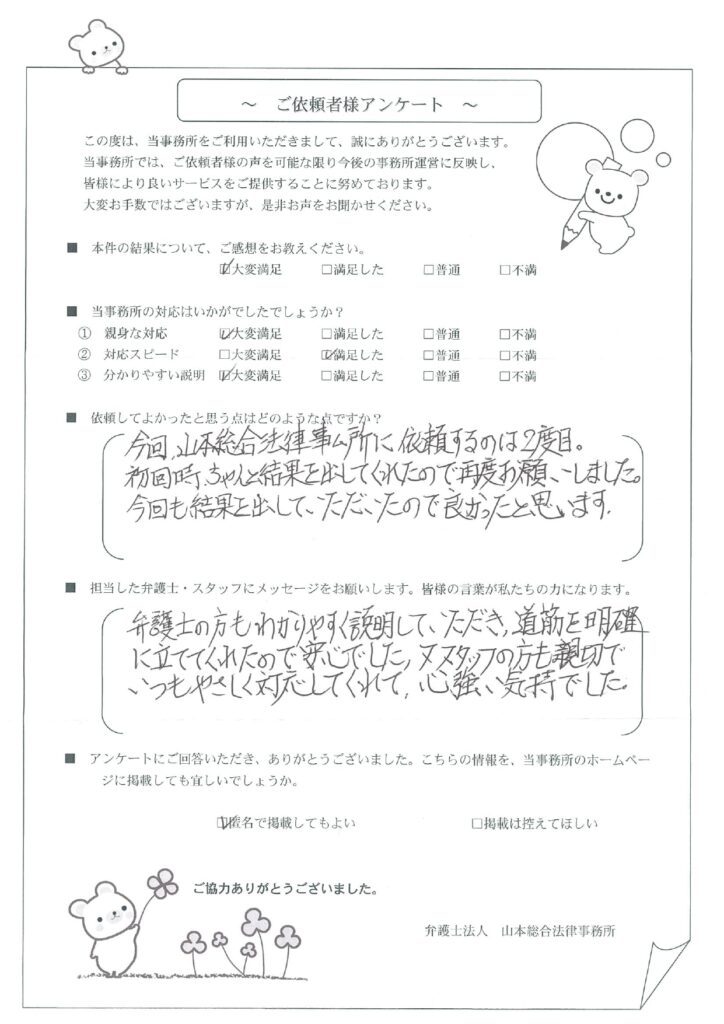 ～ ご依頼者様アンケート ～
この度は、当事務所をご利用いただきまして、誠にありがとうございます。
当事務所では、ご依頼者様の声を可能な限り今後の事務所運営に反映し、
皆様により良いサービスをご提供することに努めております。
大変お手数ではございますが、是非お声をお聞かせください。
■ 本件の結果について、ご感想をお教えください。
☑大変満足 □満足した □普通 □不満
■ 当事務所の対応はいかがでしたでしょうか？
① 親身な対応 ☑大変満足 □満足した □普通 □不満
② 対応スピード □大変満足 ☑満足した □普通 □不満
③ 分かりやすい説明 ☑大変満足 □満足した □普通 □不満
■ 依頼してよかったと思う点はどのような点ですか？
今回、山本総合法律事ム所に依頼するのは2度目。
初回時、ちゃんと結果を出してくれたので再度お願いしました。
今回も結果を出して、いただいたので良かったと思います。
■ 担当した弁護士・スタッフにメッセージをお願いします。皆様の言葉が私たちの力になります。
弁護士の方もわかりやすく説明して、いただき、道筋を明確
に立ててくれたので安心でした。又スタッフの方も親切で
いつもやさしく対応してくれて、心強い気持でした。
■ アンケートにご回答いただき、ありがとうございました。こちらの情報を、当事務所のホームペー
ジに掲載しても宜しいでしょうか。
☑匿名で掲載してもよい □掲載は控えてほしい
ご協力ありがとうございました。
弁護士法人 山本総合法律事務所